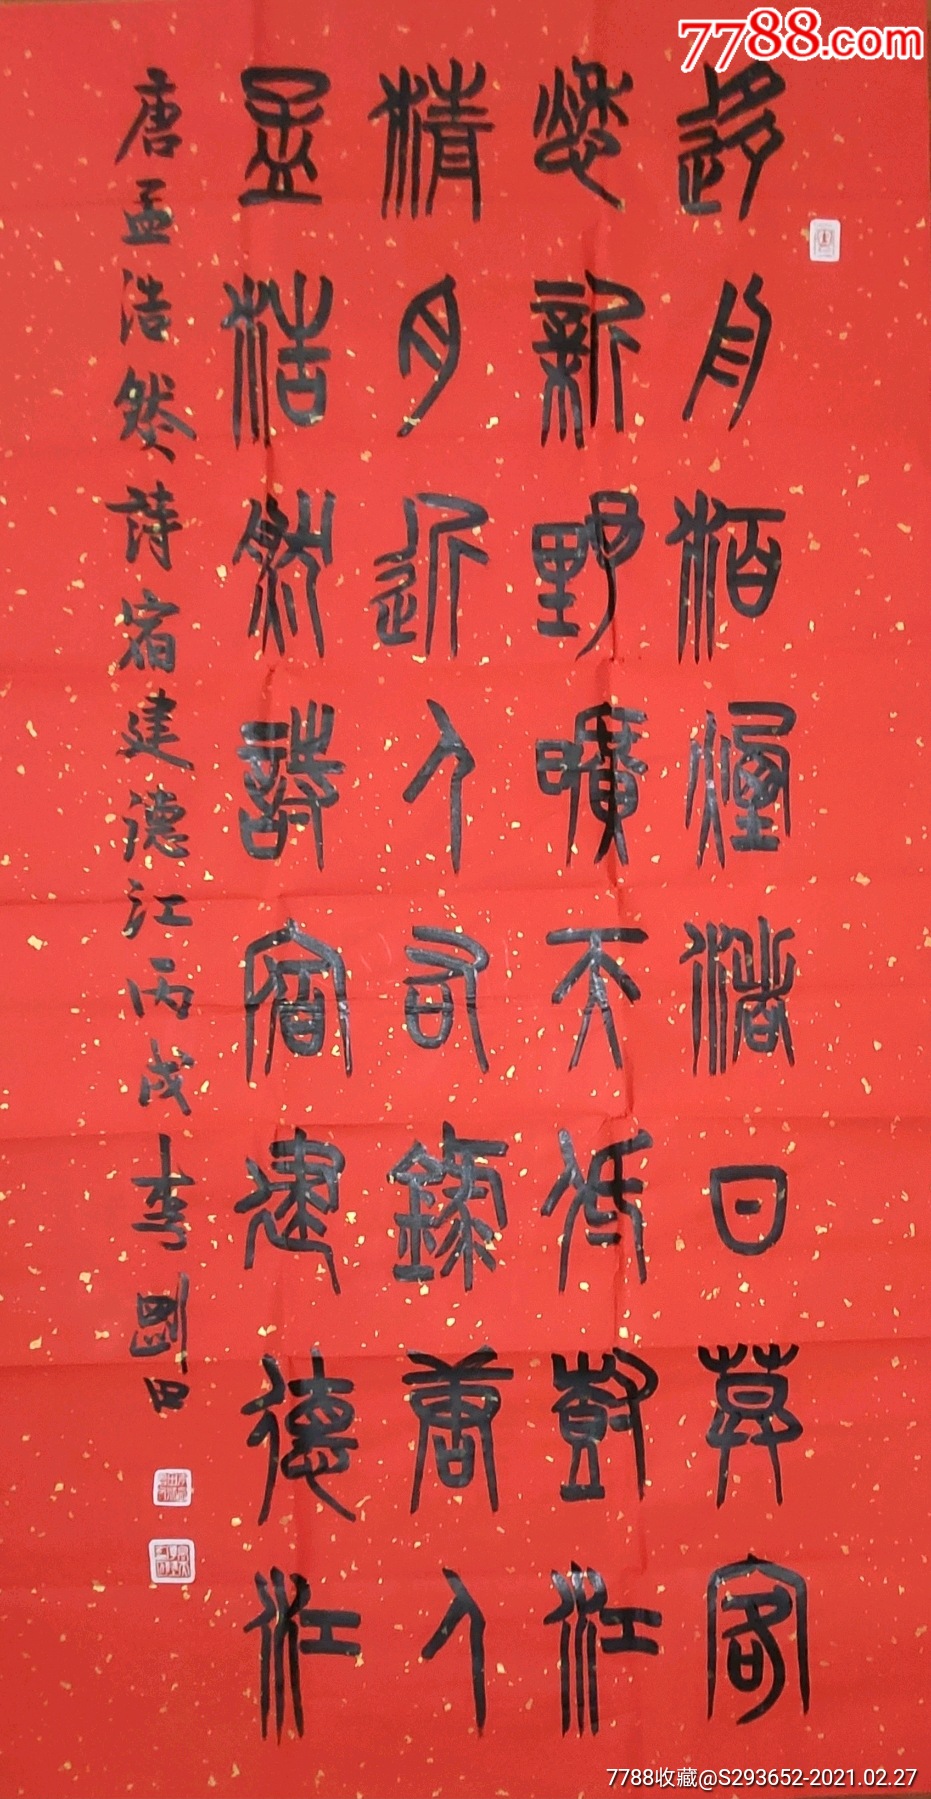 7788.com
移舟泊煙渚日暮客
愁新野曠天低樹江
清月近人右錄唐人
孟浩然詩宿建德江
唐孟浩然詩宿建德江丙戌李剛田
7788收藏@S293652-2021.02.27